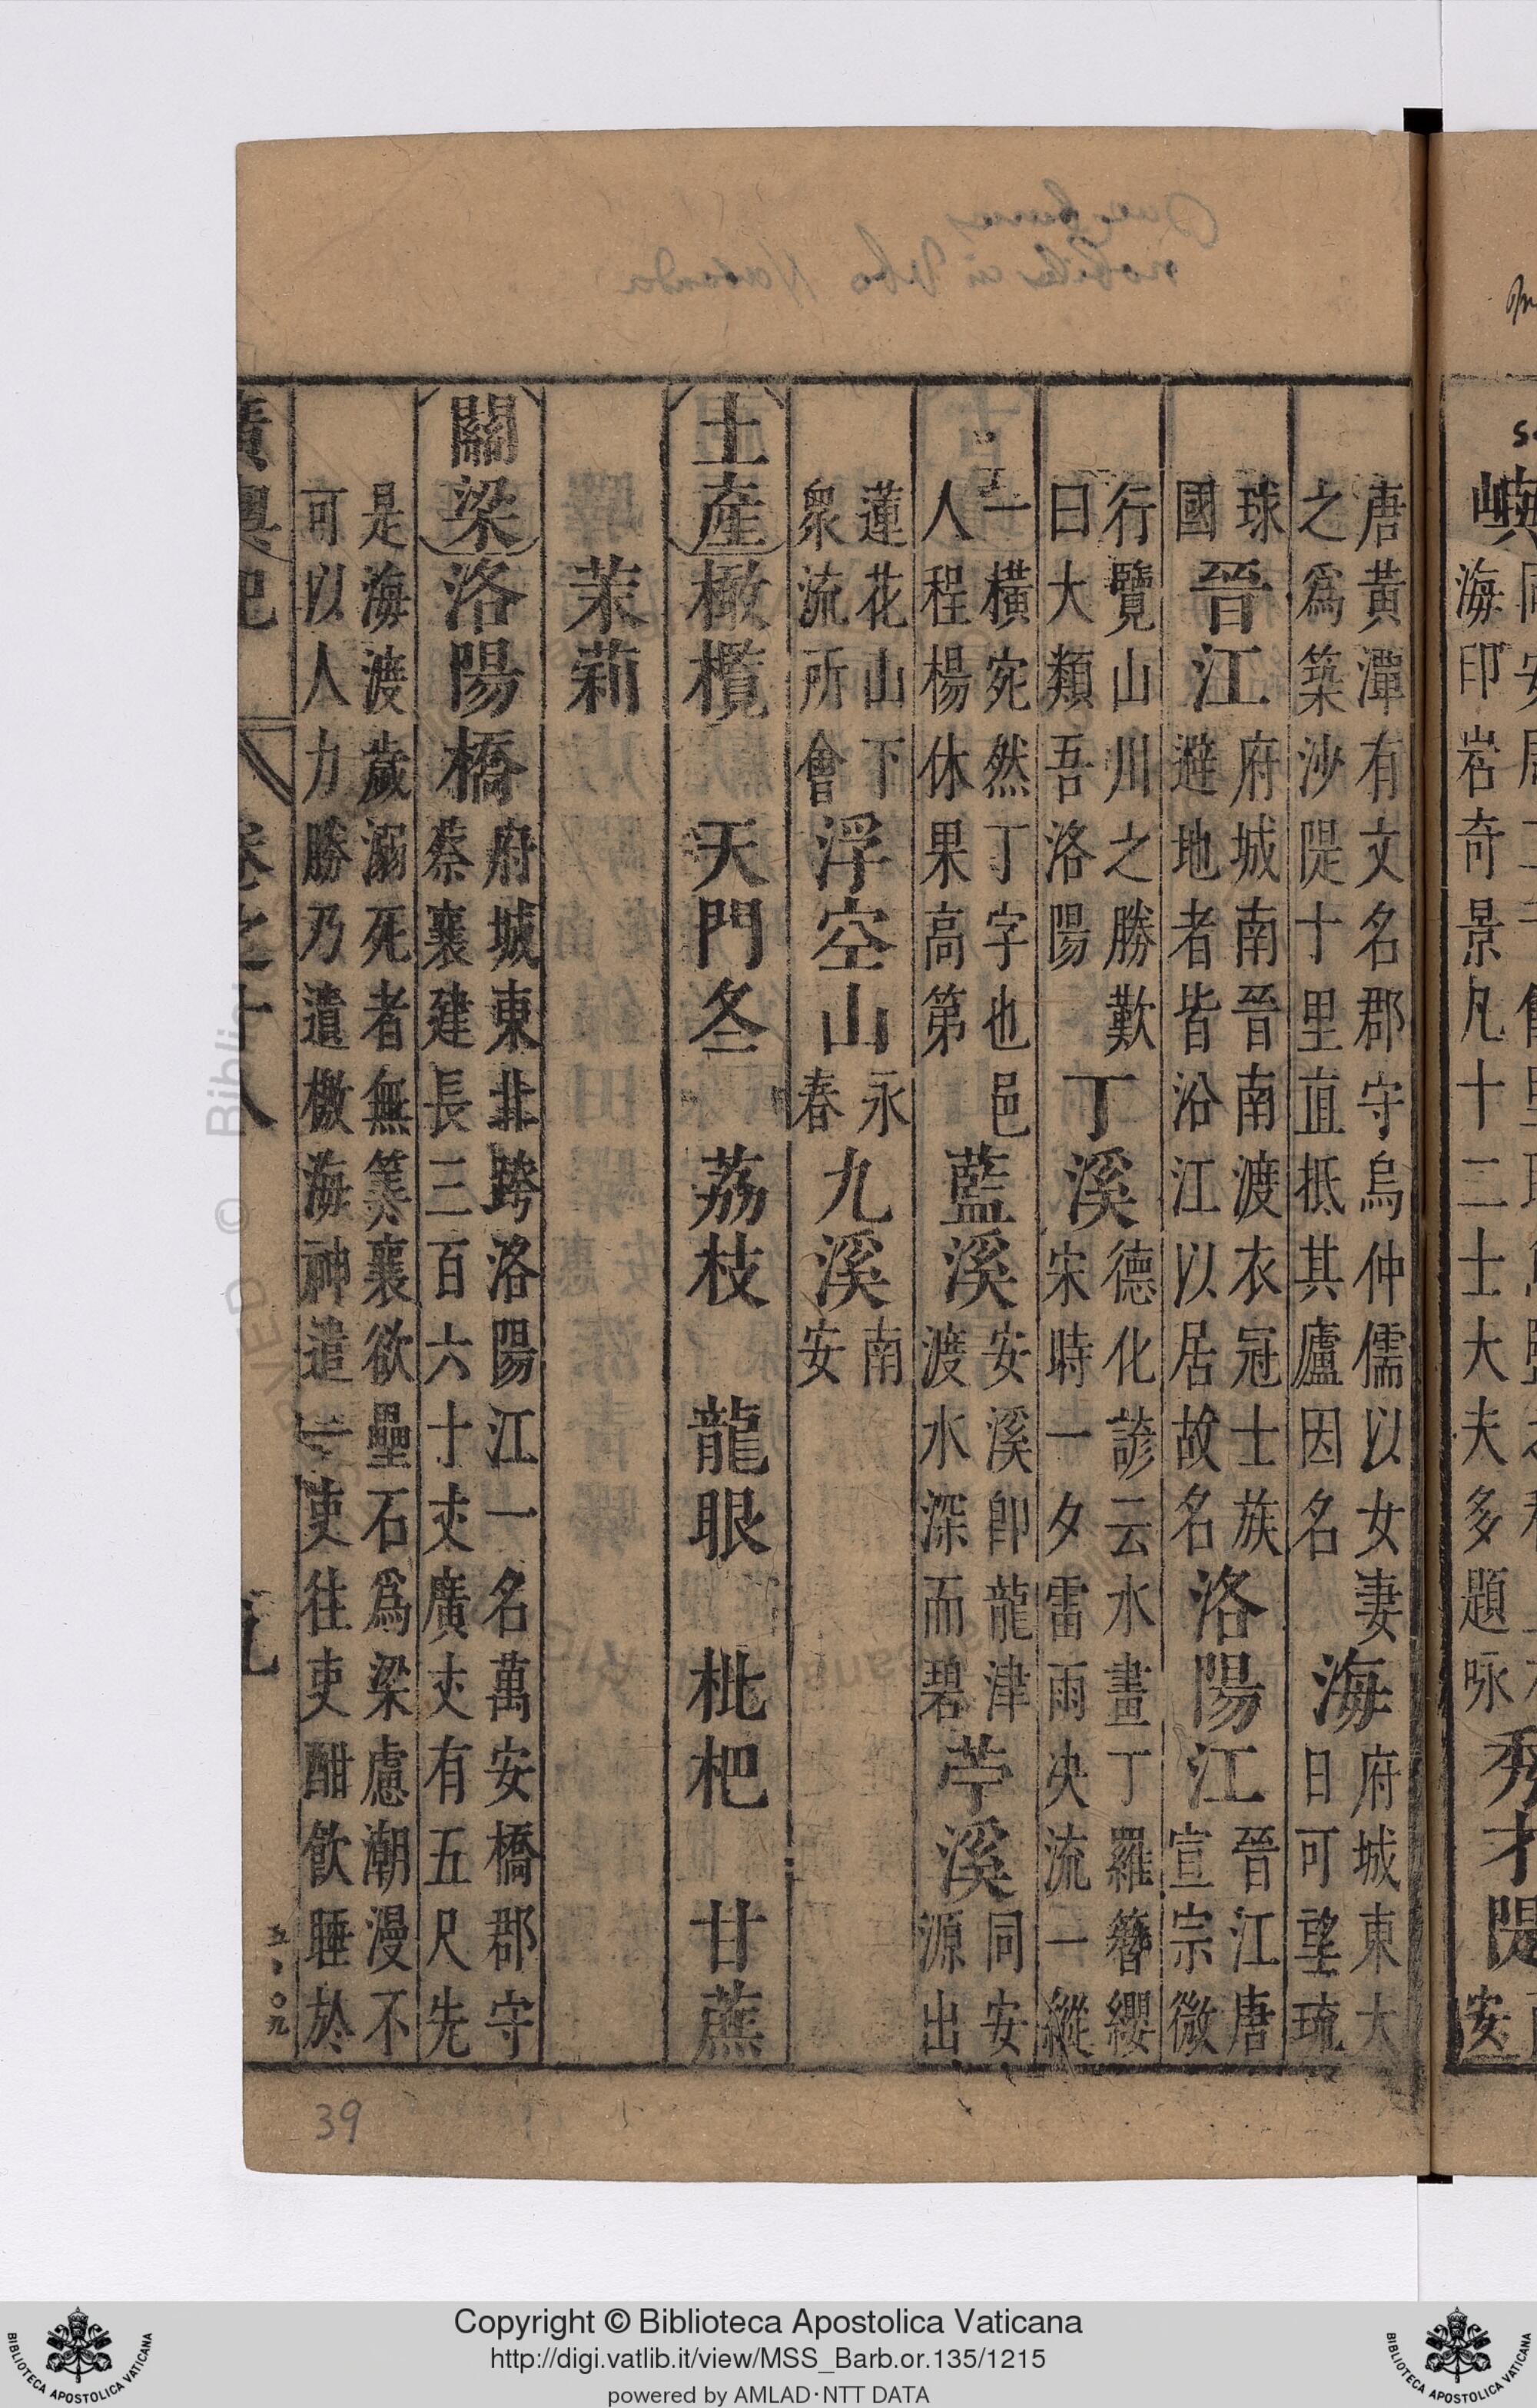 唐黃潭有文名郡守烏仲儒以女妻
之爲築沙隄十里直抵其廬因名
海
府城東大
日可望琉
球
國
晉江
府城南晉南渡衣冠士族
避地者皆沿江以居故名
洛陽江
晉江唐
宣宗微
行覽山川之勝歎
曰大類吾洛陽
丁溪
德化諺云水畫丁羅簪纓
宋時一夕雷雨決流一縱
一橫宛然丁字也邑
人程楊休果高第
藍溪
安溪卽龍津
渡水深而碧
苧溪
同安
源出
蓮花山下
衆流所會
浮空山
永
春
九溪
南
安
土產 橄欖 天門冬 荔枝 龍眼 枇杷 甘蔗
茉莉
關梁 洛陽橋
府城東北跨洛陽江一名萬安橋郡守
蔡襄建長三百六十丈廣丈有五尺先
是海渡歲溺死者無筭襄欲壘石爲梁慮潮漫不
可以人力勝乃遣檄海神遣一吏往吏酣飲睡於
廣輿記 卷之十八
39
海印岩奇景凡十二士大夫多題咏
秀才隄
安
Copyright © Biblioteca Apostolica Vaticana
http://digi.vatlib.it/view/MSS_Barb.or.135/1215
powered by AMLAD·NTT DATA
BIBLIOTECA APOSTOLICA VATICANA
BIBLIOTECA APOSTOLICA VATICANA